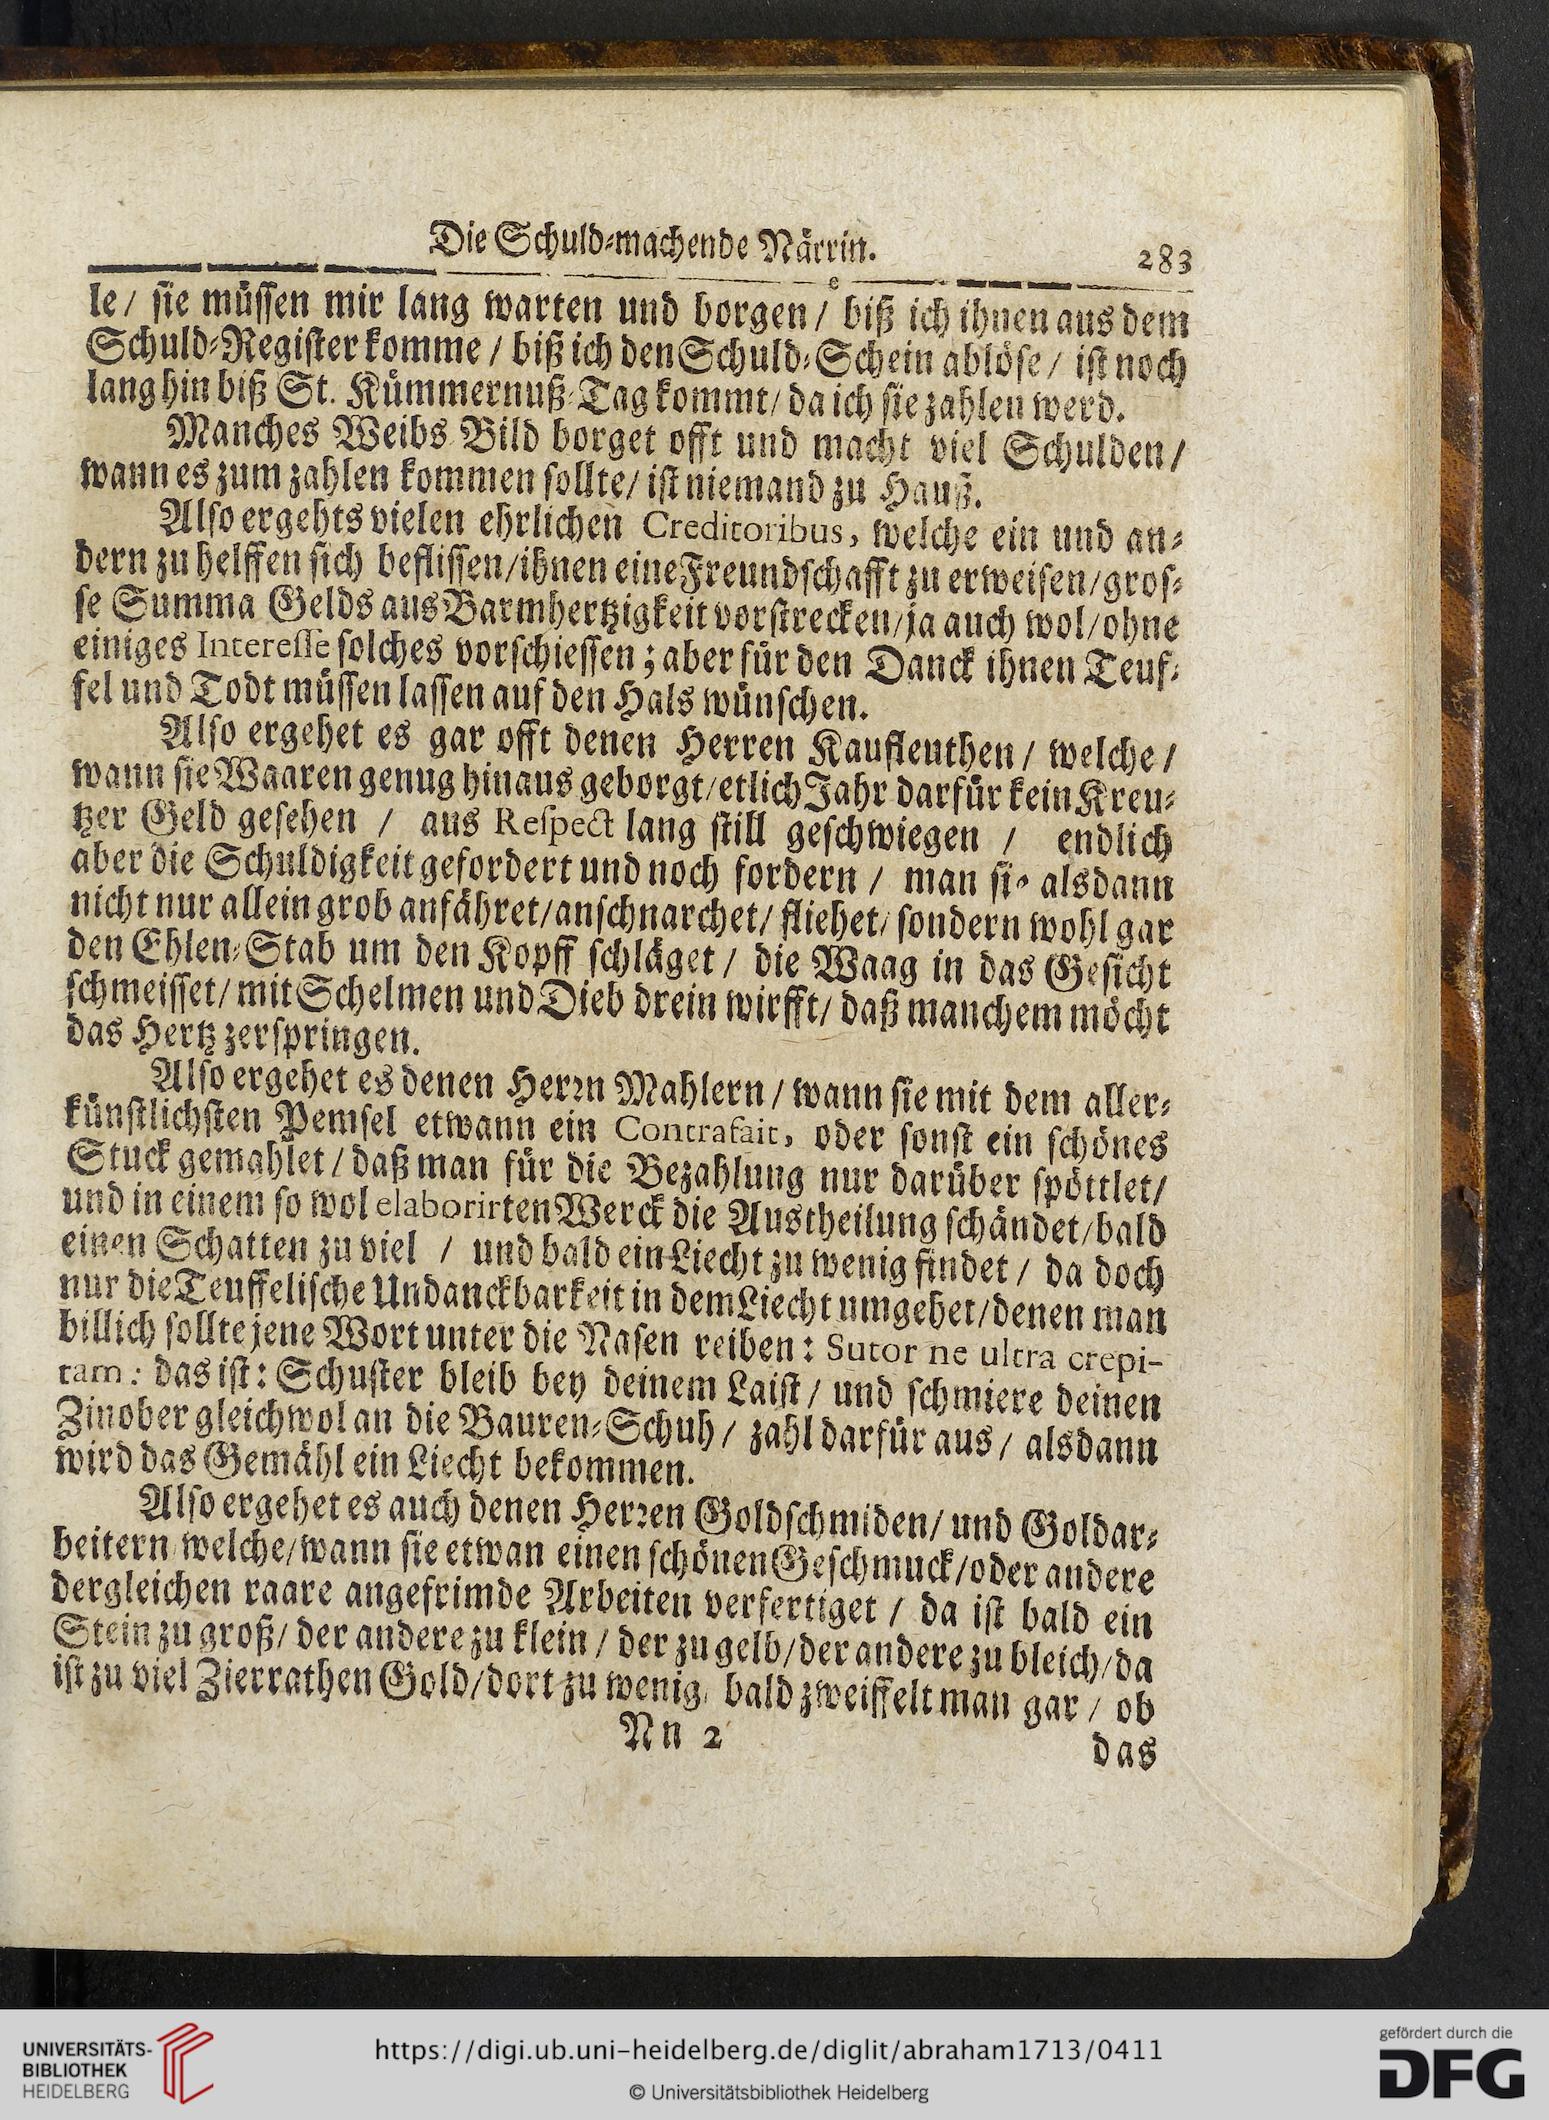 Die Schuld-machende Närrin. 283
le/ sie müssen mir lang warten und borgen/ biß ich ihnen aus dem
Schuld-Register komme / biß ich den Schuld-Schein ablöse/ ist noch
lang hin biß St. Kümmernuß-Tag kommt/ da ich sie zahlen werd.
Manches Weibs Bild borget offt und macht viel Schulden/
wann es zum zahlen kommen sollte/ ist niemand zu Hauß.
Also ergehts vielen ehrlichen Creditoribus, welche ein und an-
dern zu helffen sich beflissen/ihnen eine Freundschafft zu erweisen/gros-
se Summa Gelds aus Barmhertzigkeit vorstrecken/ja auch wol/ohne
einiges Interesse solches vorschiessen; aber für den Danck ihnen Teuf-
fel und Todt müssen lassen auf den Hals wünschen.
Also ergehet es gar offt denen Herren Kaufleuthen/ welche/
wann sie Waaren genug hinaus geborgt/etlich Jahr darfür kein Kreu-
tzer Geld gesehen / aus Respect lang still geschwiegen / endlich
aber die Schuldigkeit gefordert und noch fordern / man sie alsdann
nicht nur allein grob anfähret/anschnarchet/ fliehet/ sondern wohl gar
den Ehlen-Stab um den Kopff schläget/ die Waag in das Gesicht
schmeisset/ mit Schelmen und Dieb drein wirfft/ daß manchem möcht
das Hertz zerspringen.
Also ergehet es denen Herrn Mahlern/ wann sie mit dem aller-
künstlichsten Pemsel etwann ein Contrafait, oder sonst ein schönes
Stuck gemahlet/ daß man für die Bezahlung nur darüber spöttlet/
und in einem so wol elaborirten Werck die Austheilung schändet/bald
einen Schatten zu viel / und bald ein Liecht zu wenig findet/ da doch
nur die Teuffelische Undanckbarkeit in dem Liecht umgehet/denen man
billich sollte jene Wort unter die Nasen reiben: Sutor ne ultra crepi-
tam: das ist: Schuster bleib bey deinem Laist/ und schmiere deinen
Zinober gleichwol an die Bauren-Schuh/ zahl darfür aus/ alsdann
wird das Gemähl ein Liecht bekommen.
Also ergehet es auch denen Herren Goldschmiden/ und Goldar-
beitern welche/wann sie etwan einen schönen Geschmuck/oder andere
dergleichen raare angefrimde Arbeiten verfertiget / da ist bald ein
Stein zu groß/ der andere zu klein/ der zu gelb/der andere zu bleich/da
ist zu viel Zierrathen Gold/dort zu wenig, bald zweiffelt man gar / ob
Nn 2 das
UNIVERSITÄTS-
BIBLIOTHEK
HEIDELBERG
https://digi.ub.uni-heidelberg.de/diglit/abraham1713/0411
© Universitätsbibliothek Heidelberg
gefördert durch die
DFG